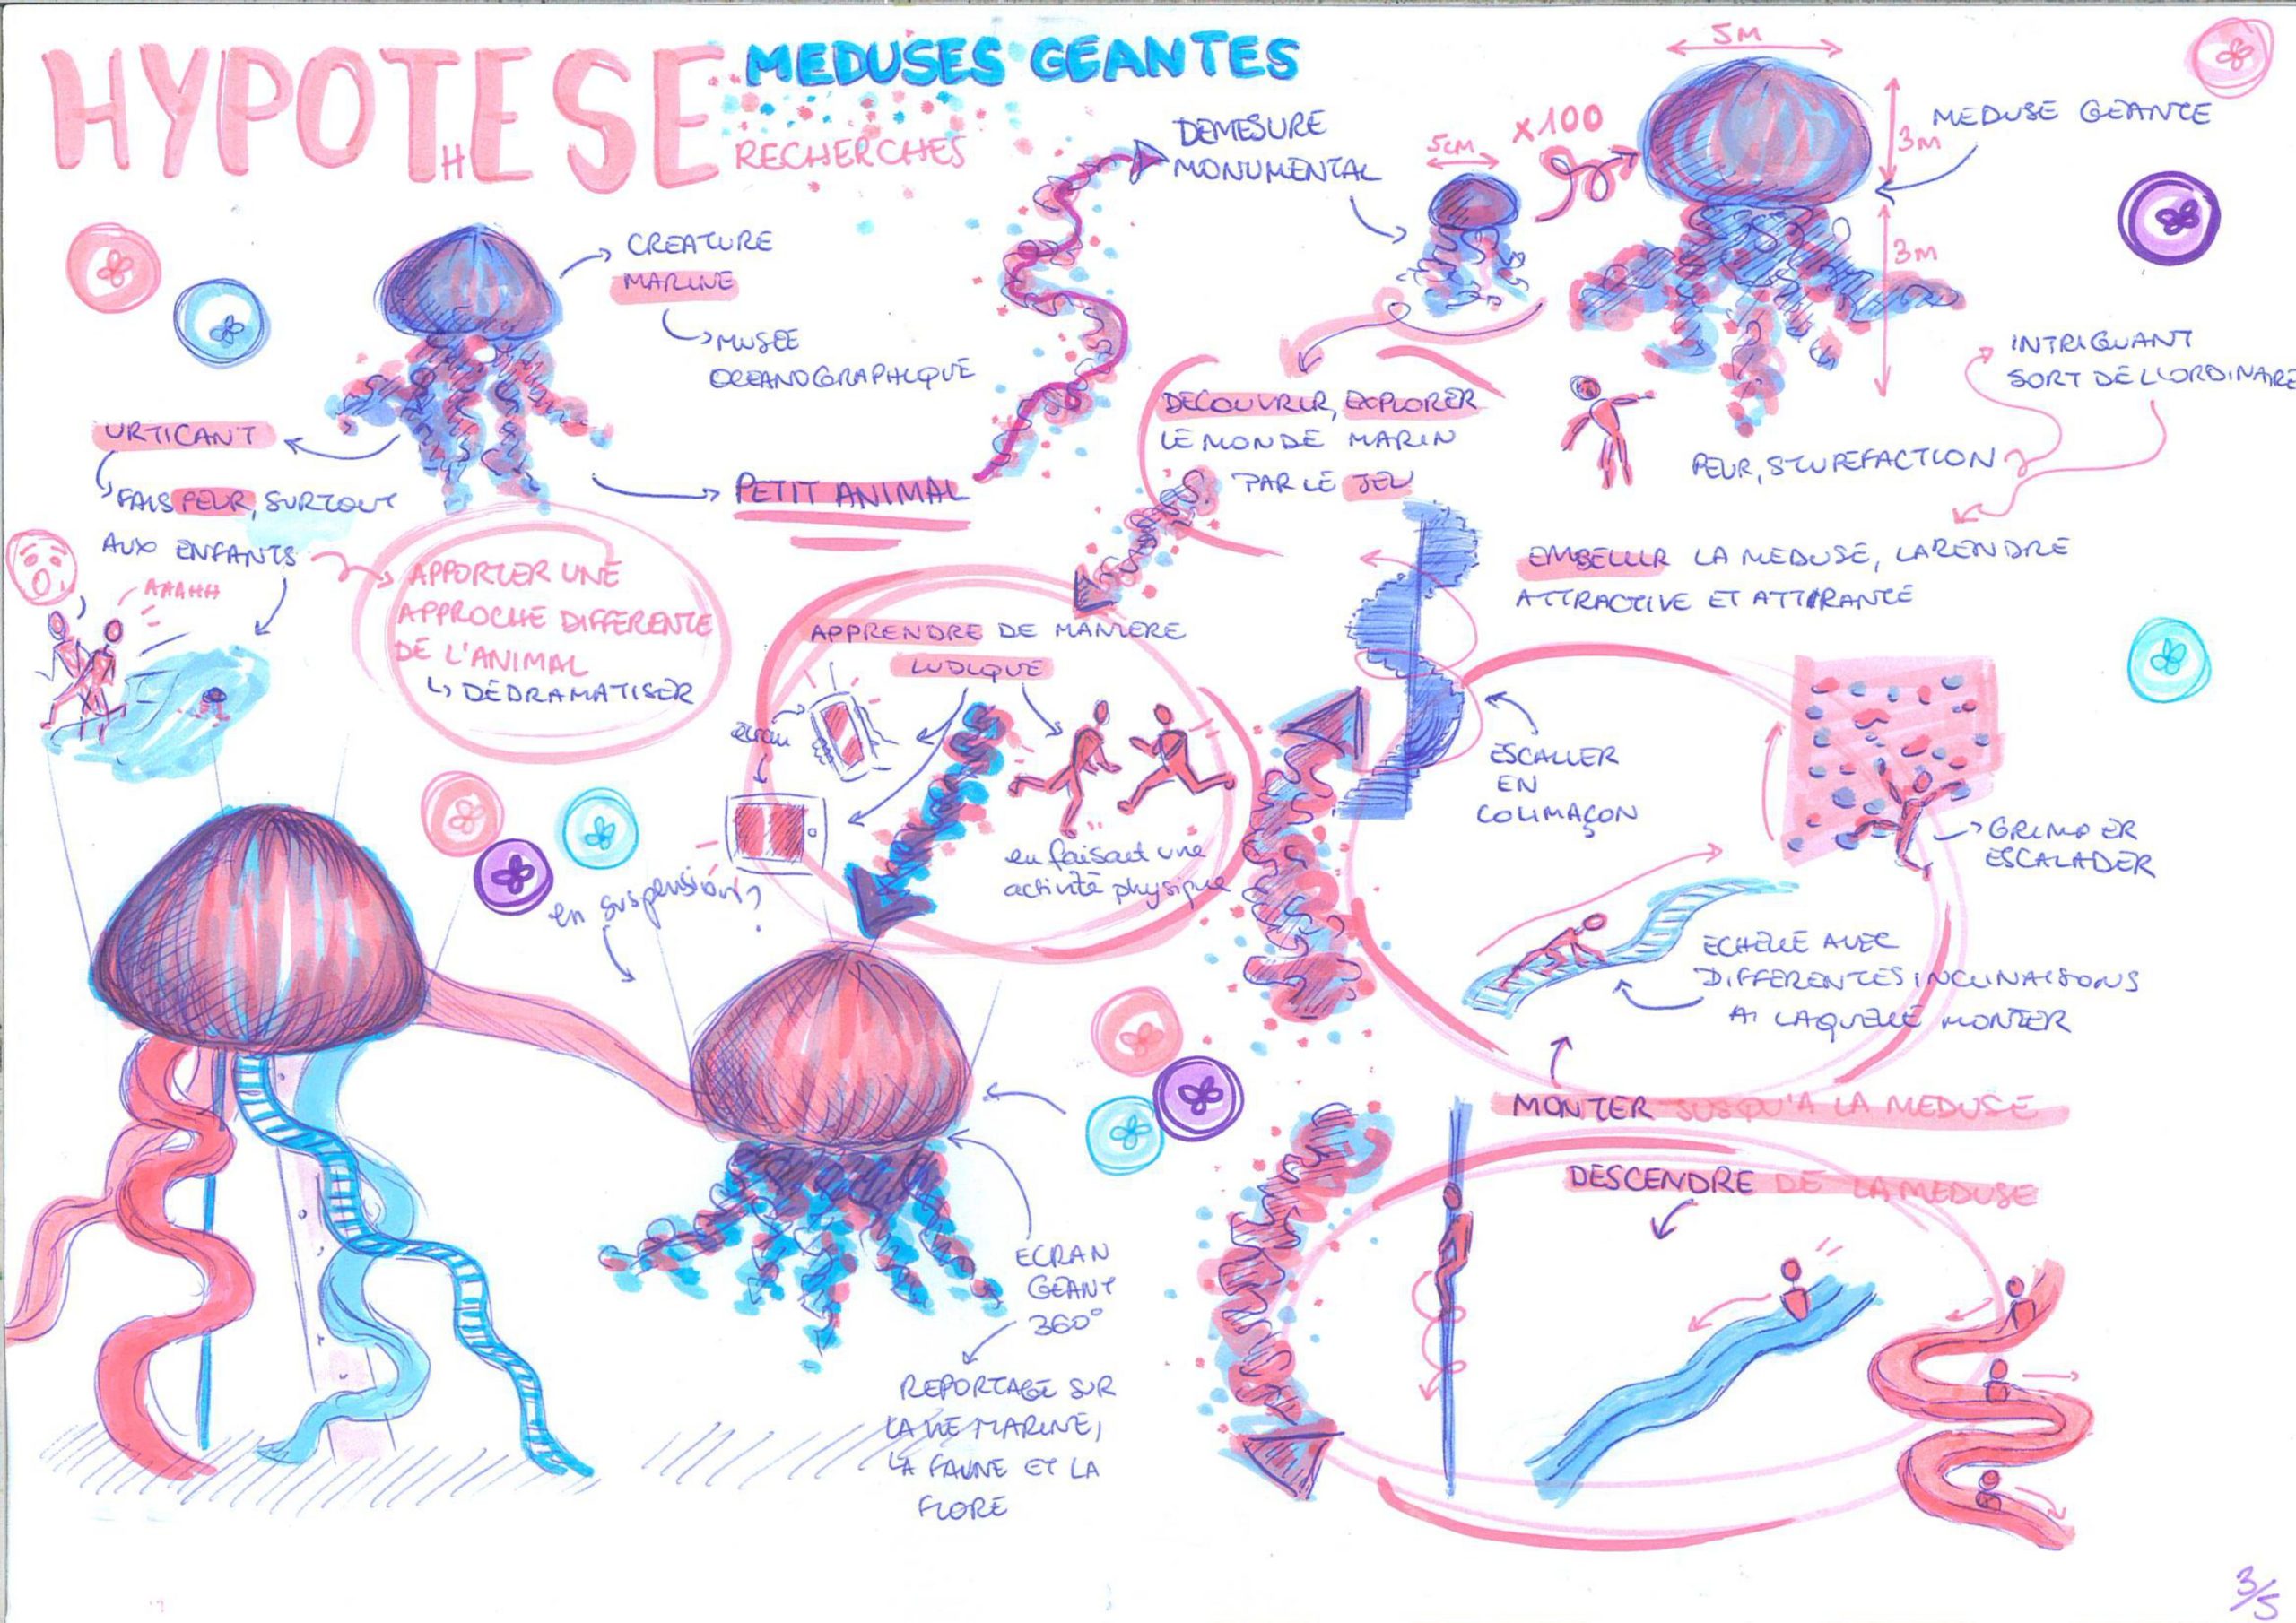 HYPOTHESE
MEDUSES GEANTES
RECHERCHES
CREATURE
MARINE
MUSEE
OCEANOGRAPHIQUE
URTICANT
FAIS PEUR, SURTOUT
AUX ENFANTS
AAAHH
APPORTER UNE
APPROCHE DIFFERENTE
DE L'ANIMAL
DEDRAMATISER
PETIT ANIMAL
DEMESURE
MONUMENTAL
5CM
X100
5M
3M
3M
MEDUSE GEANTE
INTRIGUANT
SORT DE L'ORDINAIRE
PEUR, STUPEFACTION
EMBELLIR LA MEDUSE, LA RENDRE
ATTRACTIVE ET ATTIRANTE
DECOUVRIR, EXPLORER
LE MONDE MARIN
PAR LE JEU
APPRENDRE DE MANIERE
LUDIQUE
écran
en faisant une
activité physique
en suspension?
ESCALIER
EN
COLIMAÇON
GRIMPER
ESCALADER
ECHELLE AVEC
DIFFERENTES INCLINAISONS
A LAQUELLE MONTER
MONTER JUSQU'A LA MEDUSE
DESCENDRE DE LA MEDUSE
ECRAN
GEANT
360°
REPORTAGE SUR
LA VIE MARINE,
LA FAUNE ET LA
FLORE
3/5